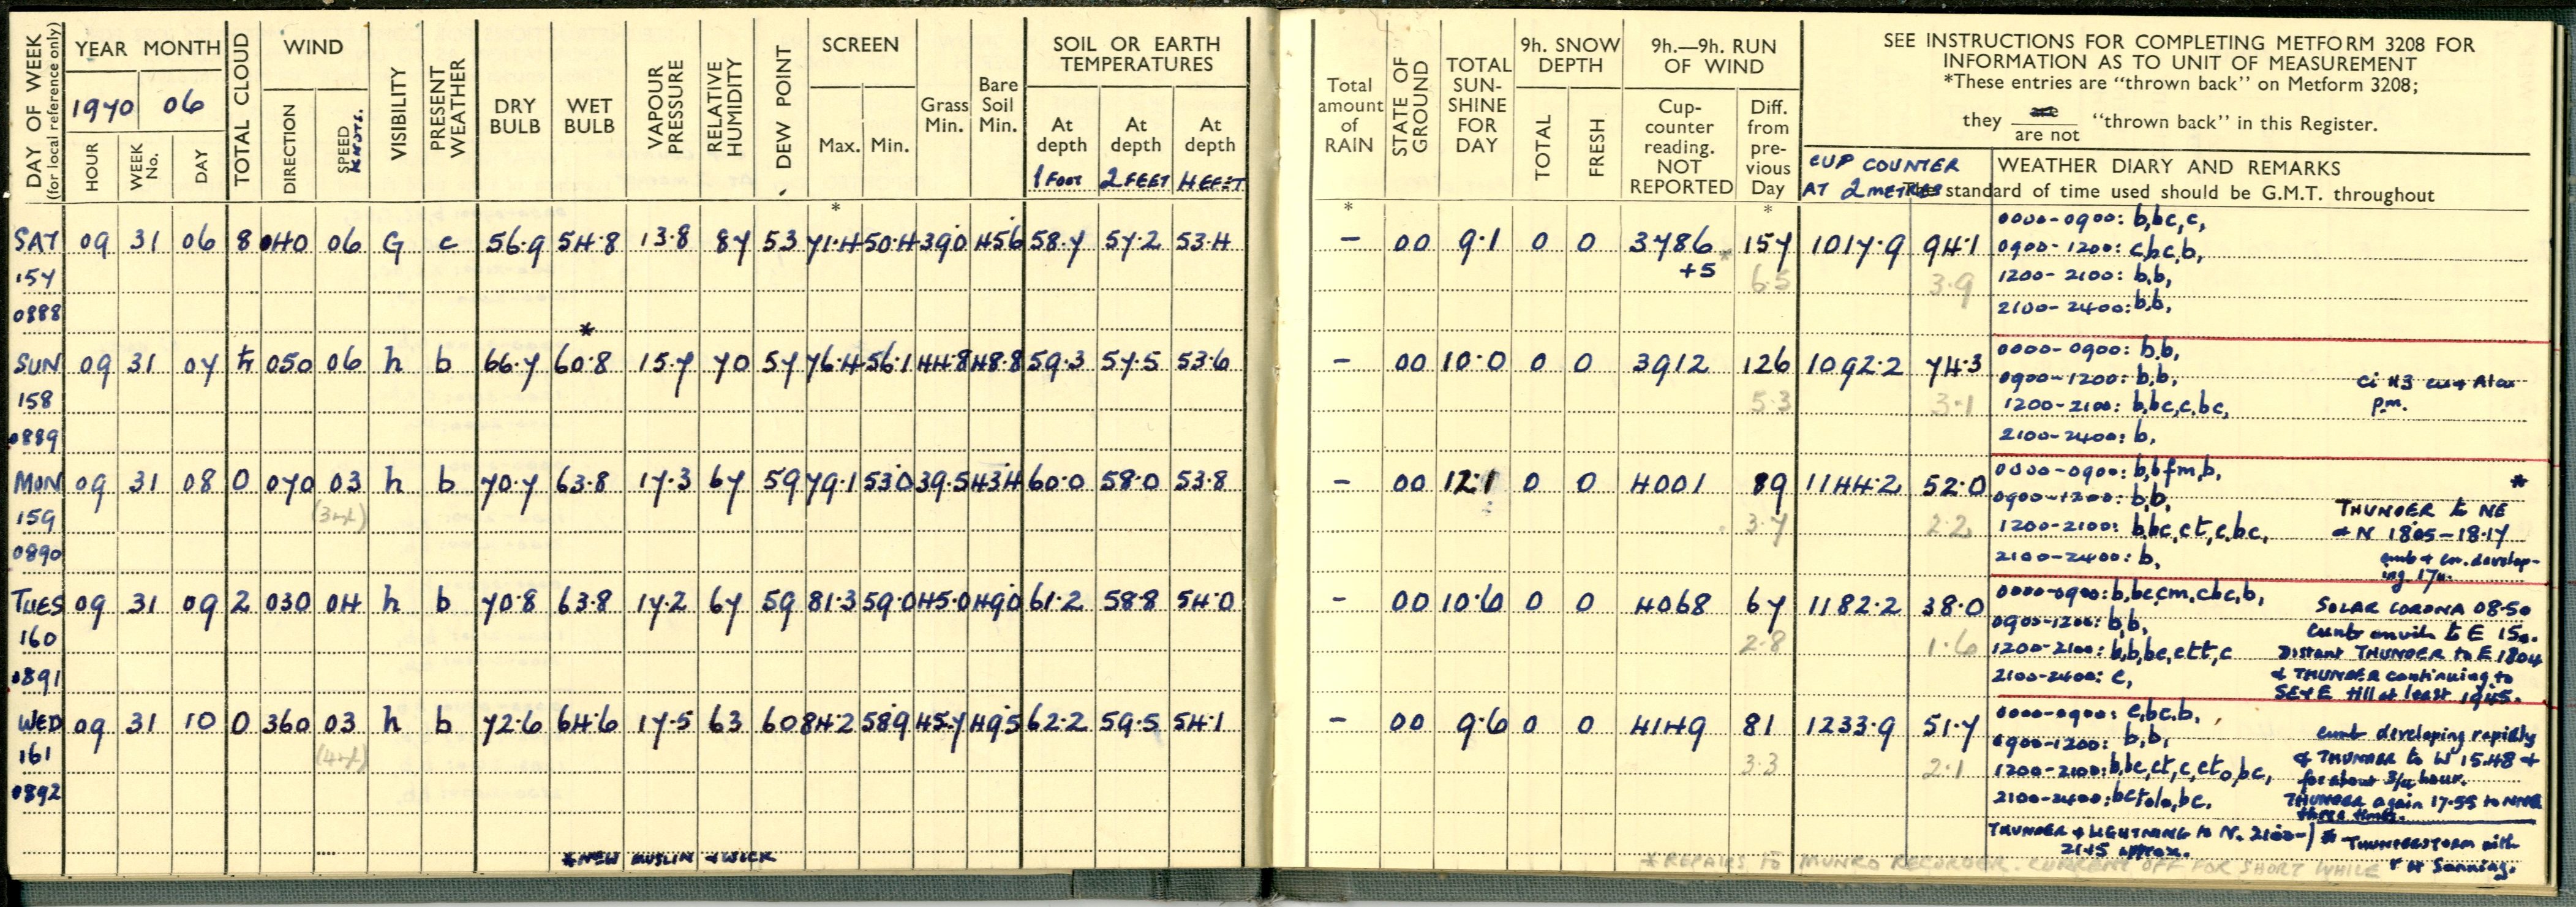 DAY OF WEEK (for local reference only)
YEAR MONTH
1970 06
HOUR WEEK No. DAY
TOTAL CLOUD
WIND
DIRECTION SPEED KNOTS.
VISIBILITY
PRESENT WEATHER
DRY BULB
WET BULB
VAPOUR PRESSURE
RELATIVE HUMIDITY
DEW POINT
SCREEN
Max. Min.
Grass Min.
Bare Soil Min.
SOIL OR EARTH TEMPERATURES
At depth At depth At depth
1 FOOT 2 FEET 4 FEET
Total amount of RAIN
STATE OF GROUND
TOTAL SUN-SHINE FOR DAY
9h. SNOW DEPTH
TOTAL FRESH
9h.—9h. RUN OF WIND
Cup-counter reading. NOT REPORTED
Diff. from pre-vious Day
SEE INSTRUCTIONS FOR COMPLETING METFORM 3208 FOR
INFORMATION AS TO UNIT OF MEASUREMENT
*These entries are "thrown back" on Metform 3208;
they are / are not "thrown back" in this Register.
CUP COUNTER
AT 2 METRES
WEATHER DIARY AND REMARKS
The standard of time used should be G.M.T. throughout
* * *
SAT 09 31 06 8 040 06 G c 56.9 54.8 13.8 87 53 71.4 50.4 39.0 45.6 58.7 57.2 53.4 – 00 9.1 0 0 3786 157 1017.9 94.1
+5 *
6.5 3.9
157
0888
0000-0900: b,bc,c,
0900-1200: c,bc,b,
1200-2100: b,b,
2100-2400: b,b,
*
SUN 09 31 07 050 06 h b 66.7 60.8 15.7 70 57 76.4 56.1 44.8 48.8 59.3 57.5 53.6 – 00 10.0 0 0 3912 126 1092.2 74.3
5.3 3.1
158
0889
0000-0900: b,b,
0900-1200: b,b,
1200-2100: b,bc,c,bc,
2100-2400: b,
p.m.
MON 09 31 08 0 070 03 h b 70.7 63.8 17.3 67 59 79.1 53.0 39.5 43.4 60.0 58.0 53.8 – 00 12.1 0 0 4001 89 1144.2 52.0
3.7 2.2
159
0890
0000-0900: b,bfm,b,
0900-1200: b,b,
1200-2100: b,bc,ct,c,bc,
2100-2400: b,
*
THUNDER to NE
& N 1805-18.17
TUES 09 31 09 2 030 04 h b 70.8 63.8 17.2 67 59 81.3 59.0 45.0 49.0 61.2 58.8 54.0 – 00 10.6 0 0 4068 67 1182.2 38.0
2.8 1.6
160
0891
0000-0900: b,bc,cm,cbc,b,
0900-1200: b,b,
1200-2100: b,b,bc,ctt,c
2100-2400: c,
SOLAR CORONA 08.50
cumb anvil to E
Distant THUNDER to E 1804
& THUNDER continuing to
SE & E till at least 1945.
WED 09 31 10 0 360 03 h b 72.6 64.6 17.5 63 60 84.2 58.9 45.7 49.5 62.2 59.5 54.1 – 00 9.6 0 0 4149 81 1233.9 51.7
3.3 2.1
161
0892
0000-0900: c,bc,b,
0900-1200: b,b,
1200-2100: b,bc,ct,c,cto,bc,
2100-2400:
cumb developing rapidly
& THUNDER to W 15.48 &
for about 3/4 hour.
THUNDER again 17.55 to NNE
three times.
THUNDER & LIGHTNING to N. 2100-
2145 approx.
* THUNDERSTORM with
r at Sonning.
*NEW MUSLIN & WICK
*REPAIRS TO MUNRO RECORDER. CURRENT OFF FOR SHORT WHILE